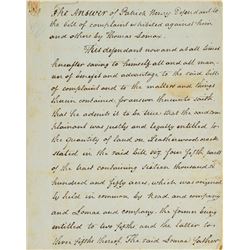 The Answer of Patrick Henry Defendant to
the bill of complaint exhibited against him
and others by Thomas Lomax.
This defendant now and at all times
hereafter saving to himself all and all man-
ner of benefit and advantage to the said bill
of complaint and to the matters and things
therein contained, for answer thereunto saith
that he admits it to be true that the com
plainant was justly and legally entitled to
the quantity of land on Leatherwood creek
stated in the said bill viz. four fifths parts
of the tract containing sixteen thousand
hundred and fifty acres, which was
to held in common by Read and company
and Lomax and company, the former being
entitled to two fifths and the latter to
three fifths thereof. The said Lomax